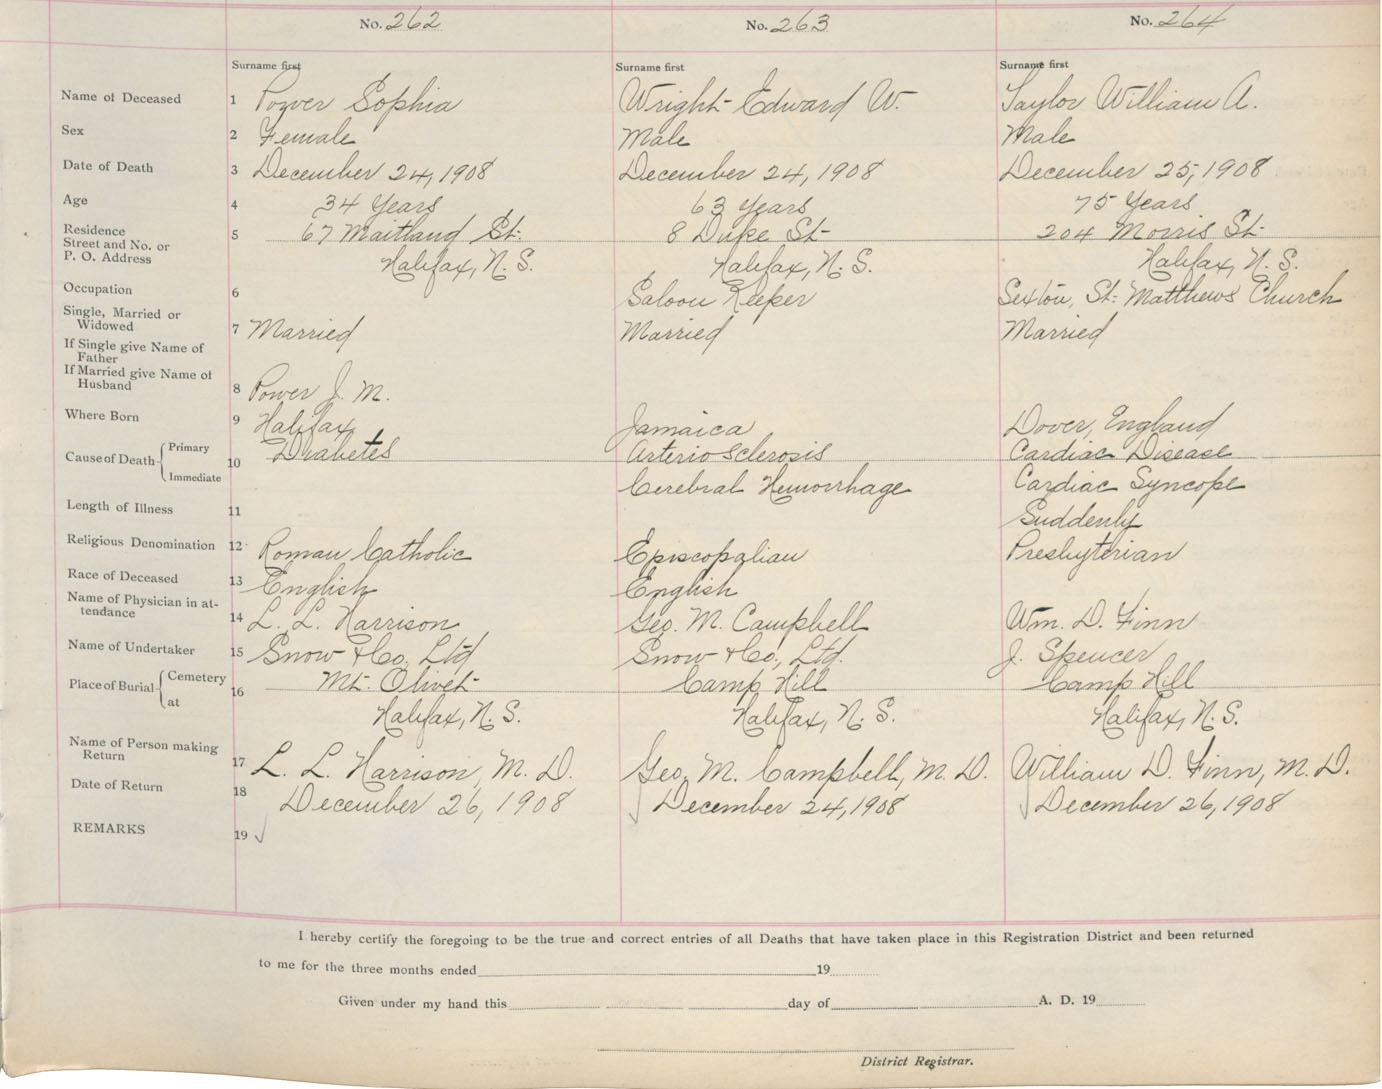 No. 262 No. 263 No. 264
Surname first Surname first Surname first
Name of Deceased 1 Power Sophia Wright Edward W. Taylor William A.
Sex 2 Female Male Male
Date of Death 3 December 24, 1908 December 24, 1908 December 25, 1908
Age 4 34 Years 63 Years 75 Years
Residence
Street and No. or 5 67 Maitland St. 8 Duke St 204 Morris St.
P. O. Address Halifax, N. S. Halifax, N. S. Halifax, N. S.
Occupation 6 Saloon Keeper Sexton, St. Matthews Church
Single, Married or
Widowed 7 Married Married Married
If Single give Name of
Father
If Married give Name of
Husband 8 Power J. M.
Where Born 9 Halifax Jamaica Dover, England
Cause of Death Primary 10 Diabetes Arterio Sclerosis Cardiac Disease
Immediate Cerebral Hemorrhage Cardiac Syncope
Length of Illness 11 Suddenly
Religious Denomination 12 Roman Catholic Episcopalian Presbyterian
Race of Deceased 13 English English
Name of Physician in at-
tendance 14 L. L. Harrison Geo. M. Campbell Wm. D. Finn
Name of Undertaker 15 Snow & Co. Ltd Snow & Co., Ltd. J. Spencer
Place of Burial Cemetery 16 Mt. Olivet Camp Hill Camp Hill
at Halifax, N. S. Halifax, N. S. Halifax, N. S.
Name of Person making
Return 17 L. L. Harrison, M. D. Geo. M. Campbell, M. D. William D. Finn, M. D.
Date of Return 18 December 26, 1908 December 24, 1908 December 26, 1908
REMARKS 19
I hereby certify the foregoing to be the true and correct entries of all Deaths that have taken place in this Registration District and been returned
to me for the three months ended 19
Given under my hand this day of A. D. 19
District Registrar.